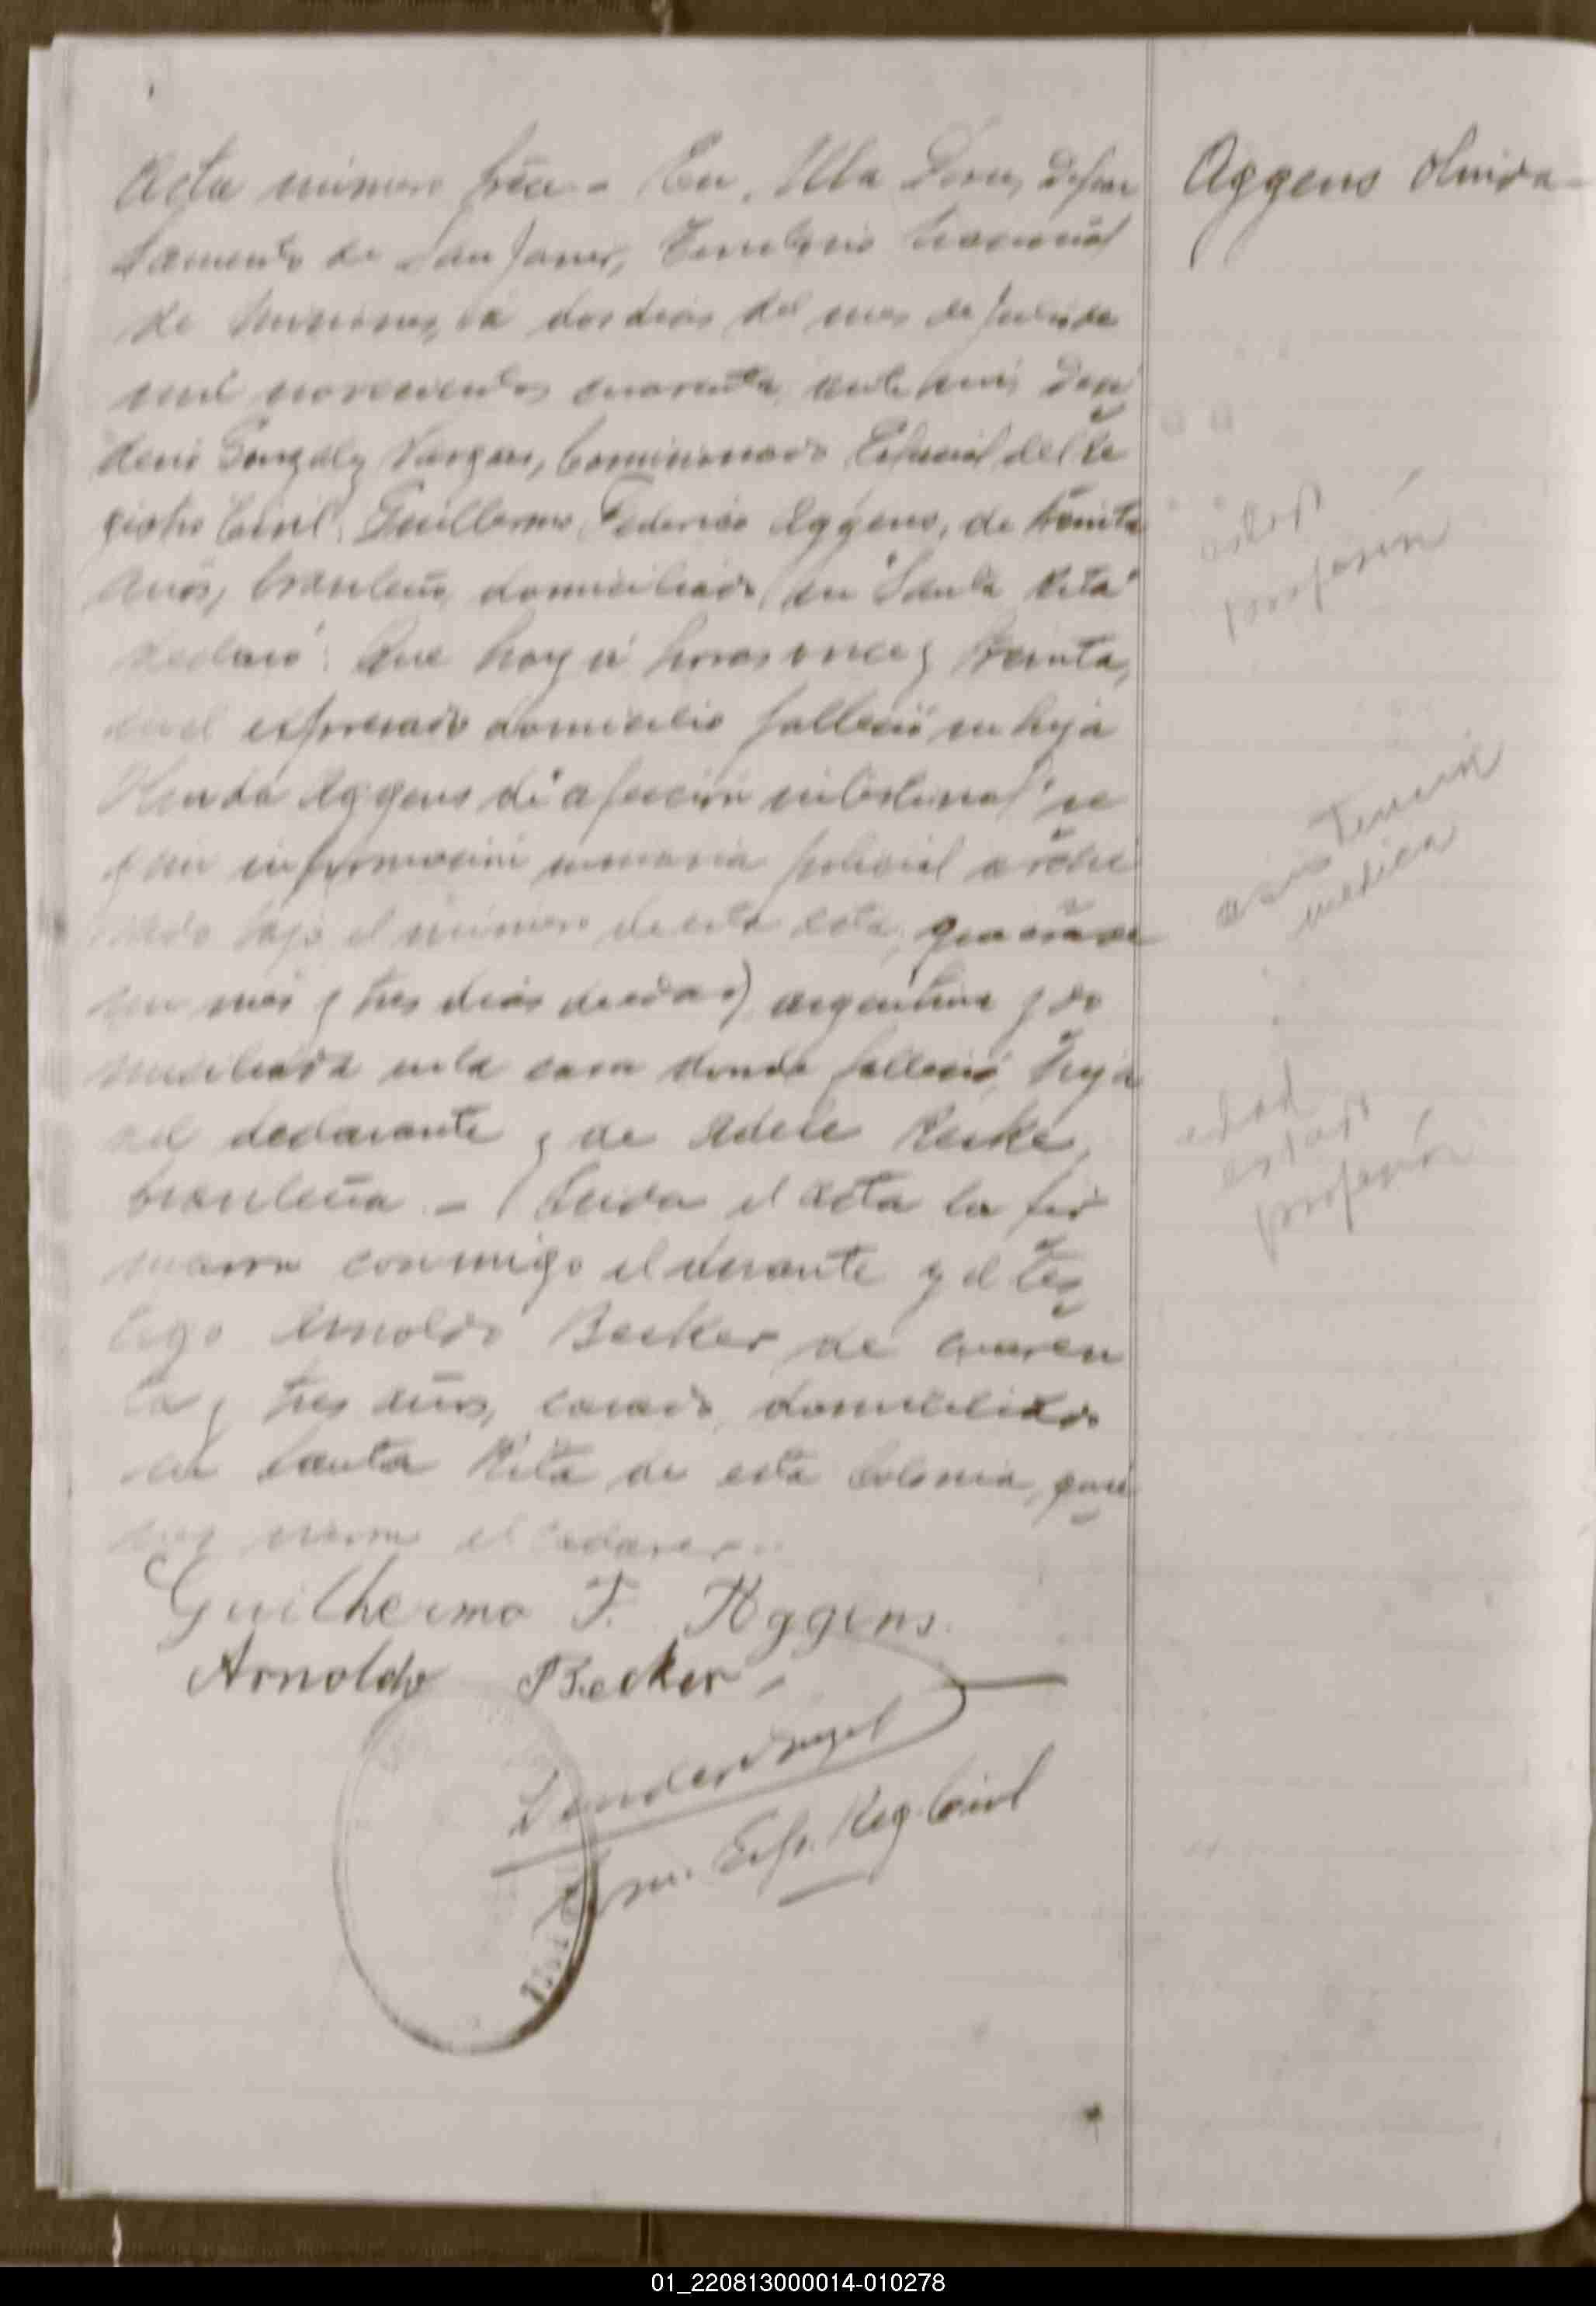 Acta número trece.- En Alba Posse, Depar
tamento de San Javier, Territorio Nacional
de Misiones, a dos dias del mes de Julio de
mil novecientos cuarenta, ante mi,
González Vargas, Comisionado Especial del Re
gistro Civil, Guillermo Federico Aggens, de treinta
años, brasileño, domiciliado en "Santa Rita"
declaró: Que hoy a horas once y treinta,
en el expresado domicilio falleció su hija
Aggens de "afección intestinal" se
gún información sumaria policial archi
vada bajo el número de esta acta, que era de
un mes y tres dias de edad, argentina y do
miciliada en la casa donde falleció, hija
del declarante y de Adele Reske,
brasileña.- Leida el acta la fir
maron conmigo el declarante y el tes
tigo Arnoldo Becker de cuaren
ta y tres años, casado, domiciliado
en Santa Rita de esta Colonia, quie
nes vieron el cadaver.-
Guilherme F. Aggens.
Arnoldo Becker-
Com. Esp. Reg. Civil
Aggens
profesión
asistencia
médica
edad
estado
profesión
01_220813000014-010278